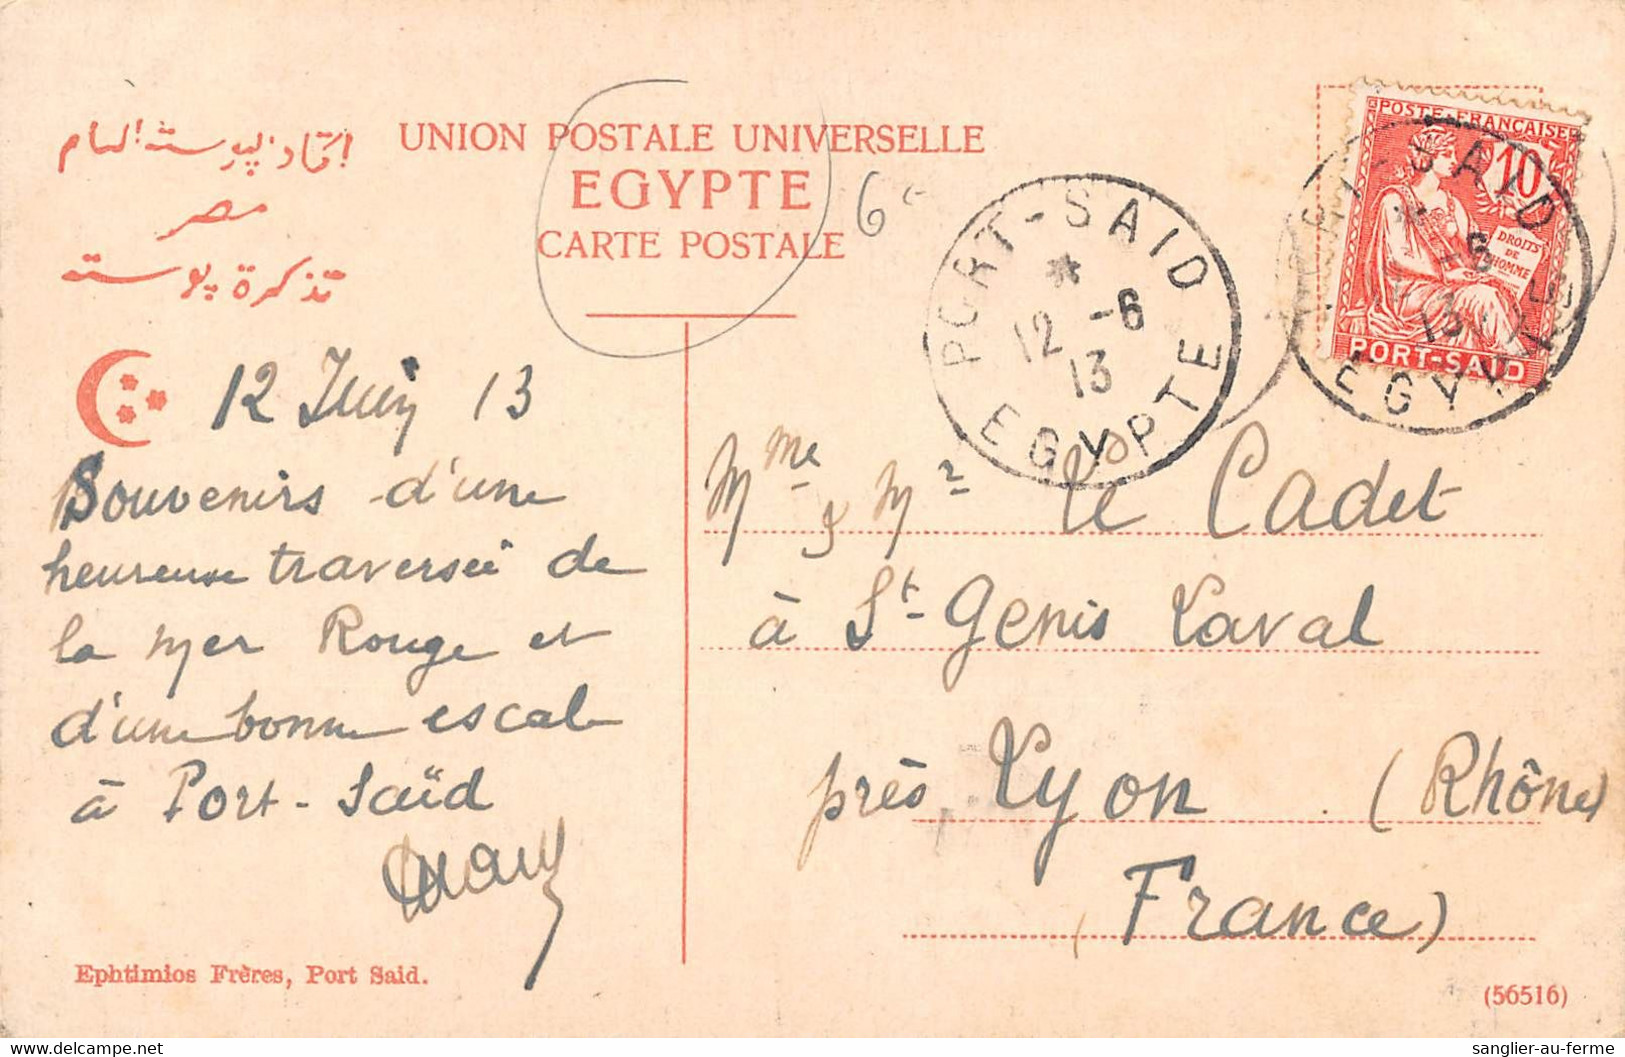 اتحاد البوسته العام
مصر
تذكرة بوسته
UNION POSTALE UNIVERSELLE
EGYPTE
CARTE POSTALE
6
PORT-SAID
*
12 -6
13
EGYPTE
POSTE FRANÇAISE
10
DROITS
DE
L'HOMME
PORT-SAID
PORT-SAID
*
-6
13
EGYPTE
12 Juin 13
Souvenirs d'une
heureuse traversée de
la mer Rouge et
d'une bonne escale
à Port-Saïd
Mme & Mr Le Cadet
à St-Genis Laval
près Lyon (Rhône)
(France)
Ephtimios Frères, Port Said.
(56516)
sanglier-au-ferme